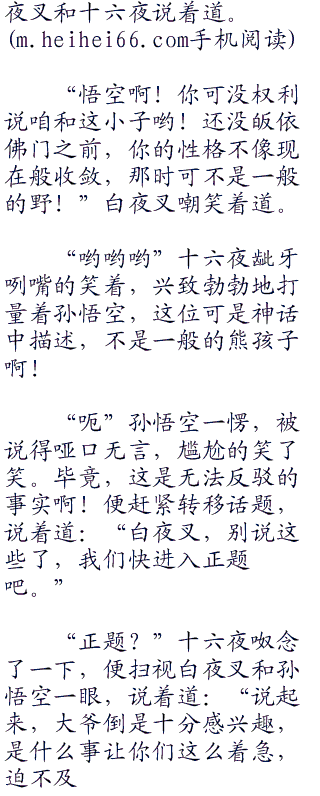 夜叉和十六夜说着道。
(m.heihei66.com手机阅读)
“悟空啊！你可没权利
说咱和这小子哟！还没皈依
佛门之前，你的性格不像现
在般收敛，那时可不是一般
的野！”白夜叉嘲笑着道。
“哟哟哟”十六夜龇牙
咧嘴的笑着，兴致勃勃地打
量着孙悟空，这位可是神话
中描述，不是一般的熊孩子
啊！
“呃”孙悟空一愣，被
说得哑口无言，尴尬的笑了
笑。毕竟，这是无法反驳的
事实啊！便赶紧转移话题，
说着道：“白夜叉，别说这
些了，我们快进入正题
吧。”
“正题？”十六夜呶念
了一下，便扫视白夜叉和孙
悟空一眼，说着道：“说起
来，大爷倒是十分感兴趣，
是什么事让你们这么着急，
迫不及